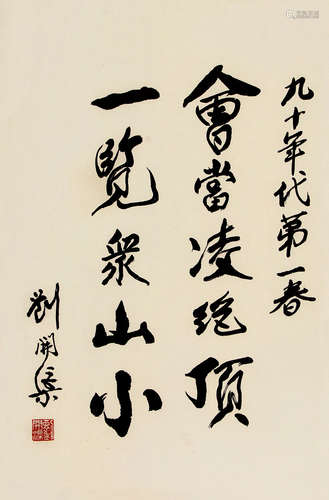 九十年代第一春
會當凌絕頂
一覽眾山小
劉開渠